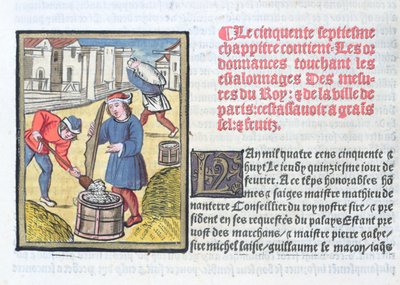 Le cinquente septiesme
chappitre contient. Les or
donnances touchant les
estalonnages Des mesu-
res du Roy: ⁊ de la ville de
paris: cestassavoir a grais
sel: ⁊ fruitz.
LAn mil quatre cens cinquente ⁊
huyt Le ieudy quinziesme iour de
feurier. A ce tēps honorables hō
mes ⁊ saiges maistre mathieu de
nanterre Conseillier du roy nostre sire ⁊ pre-
sident en ses requestes du palays Estant pre
uost des marchans / ⁊ maistre pierre galye /
sire michel laisie / guillaume le macon / iaq̄s